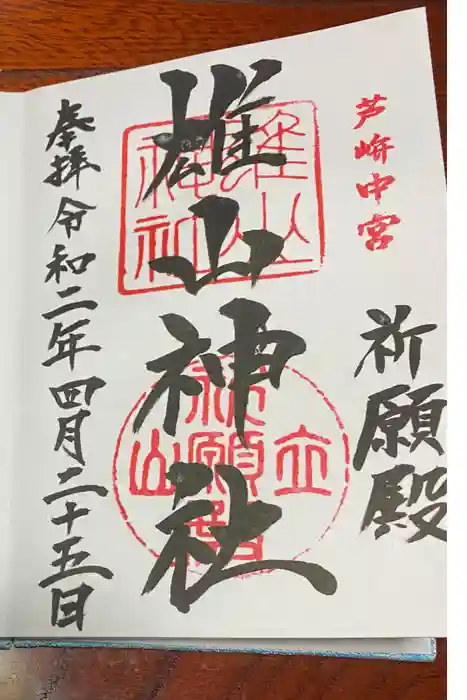 芦峅中宮
祈願殿
雄山神社
奉拝 令和二年四月二十五日
雄山神社
立山祈願殿